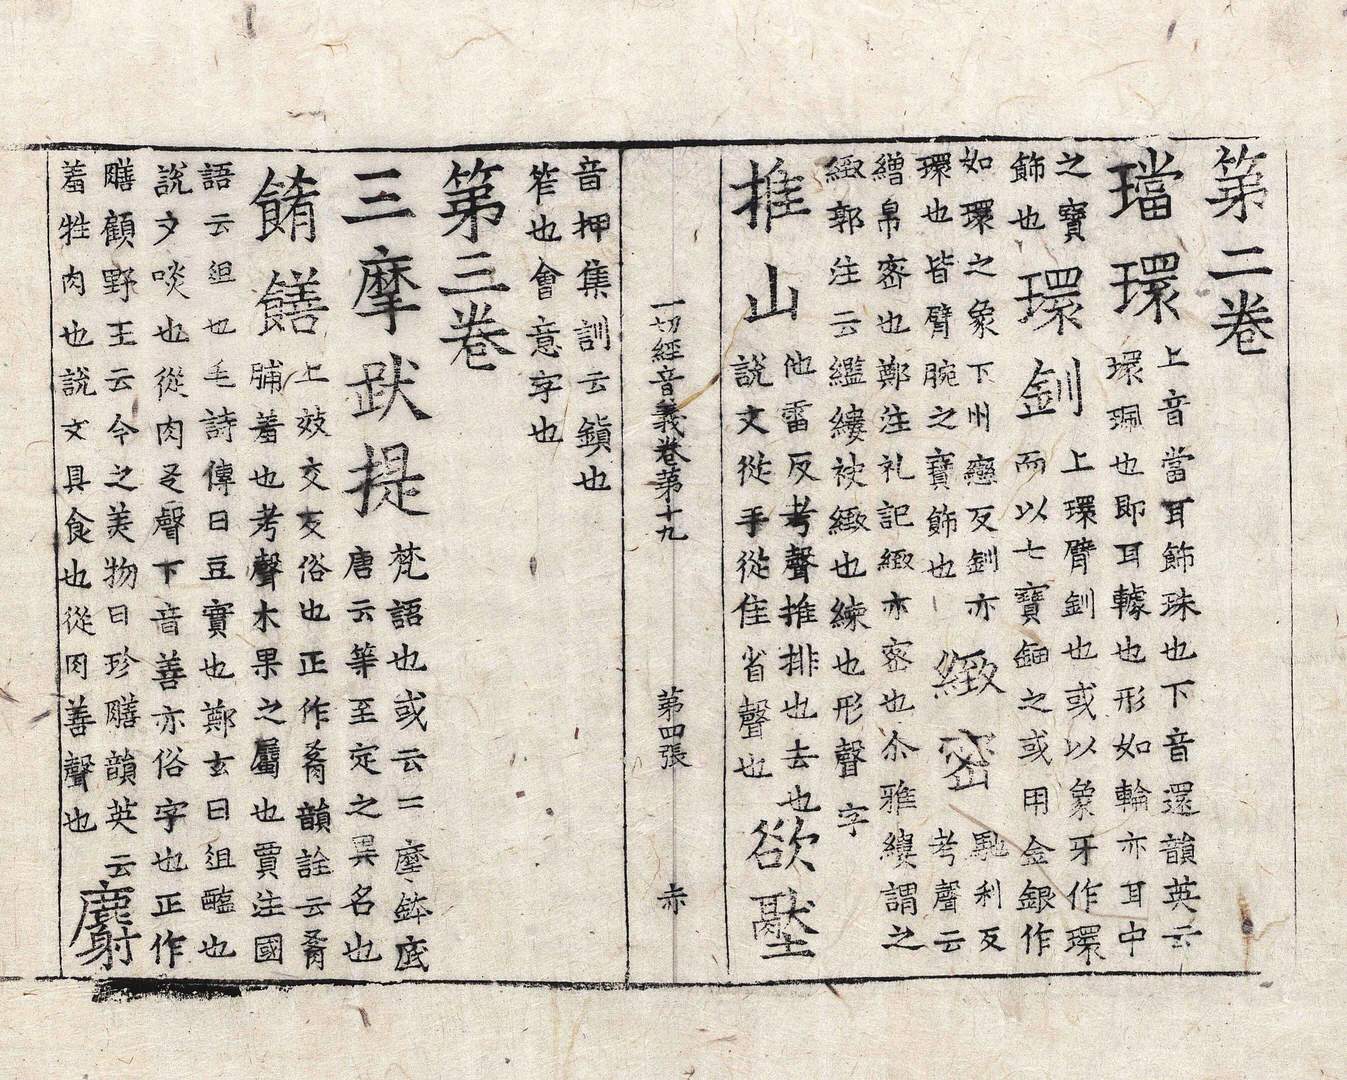 第二卷
璫環上音當耳飾珠也下音還韻英云
環珮也即耳璩也形如輪亦耳中
之寶
飾也
環釧上環臂釧也或以象牙作環
而以七寶鈿之或用金銀作
如環之象下州戀反釧亦
環也皆臂腕之寶飾也
緻密馳利反
考聲云
繒帛密也鄭注礼記緻亦密也尒雅縷謂之
緻郭注云繿縷袂緻也練也形聲字
推山他雷反考聲推排也去也
說文從手從隹省聲也
欲壓
一切經音義卷第十九 第四張 赤
音押集訓云鎮也
笮也會意字也
第三卷
三摩跋提梵語也或云二摩鉢底
唐云等至定之異名也
餚饍上效交反俗也正作肴韻詮云肴
脯羞也考聲木果之屬也賈注國
語云俎也毛詩傳曰豆實也鄭玄曰俎醢也
說文啖也從肉爻聲下音善亦俗字也正作
膳顧野王云今之美物曰珍膳韻英云
羞牲肉也說文具食也從肉善聲也
麝